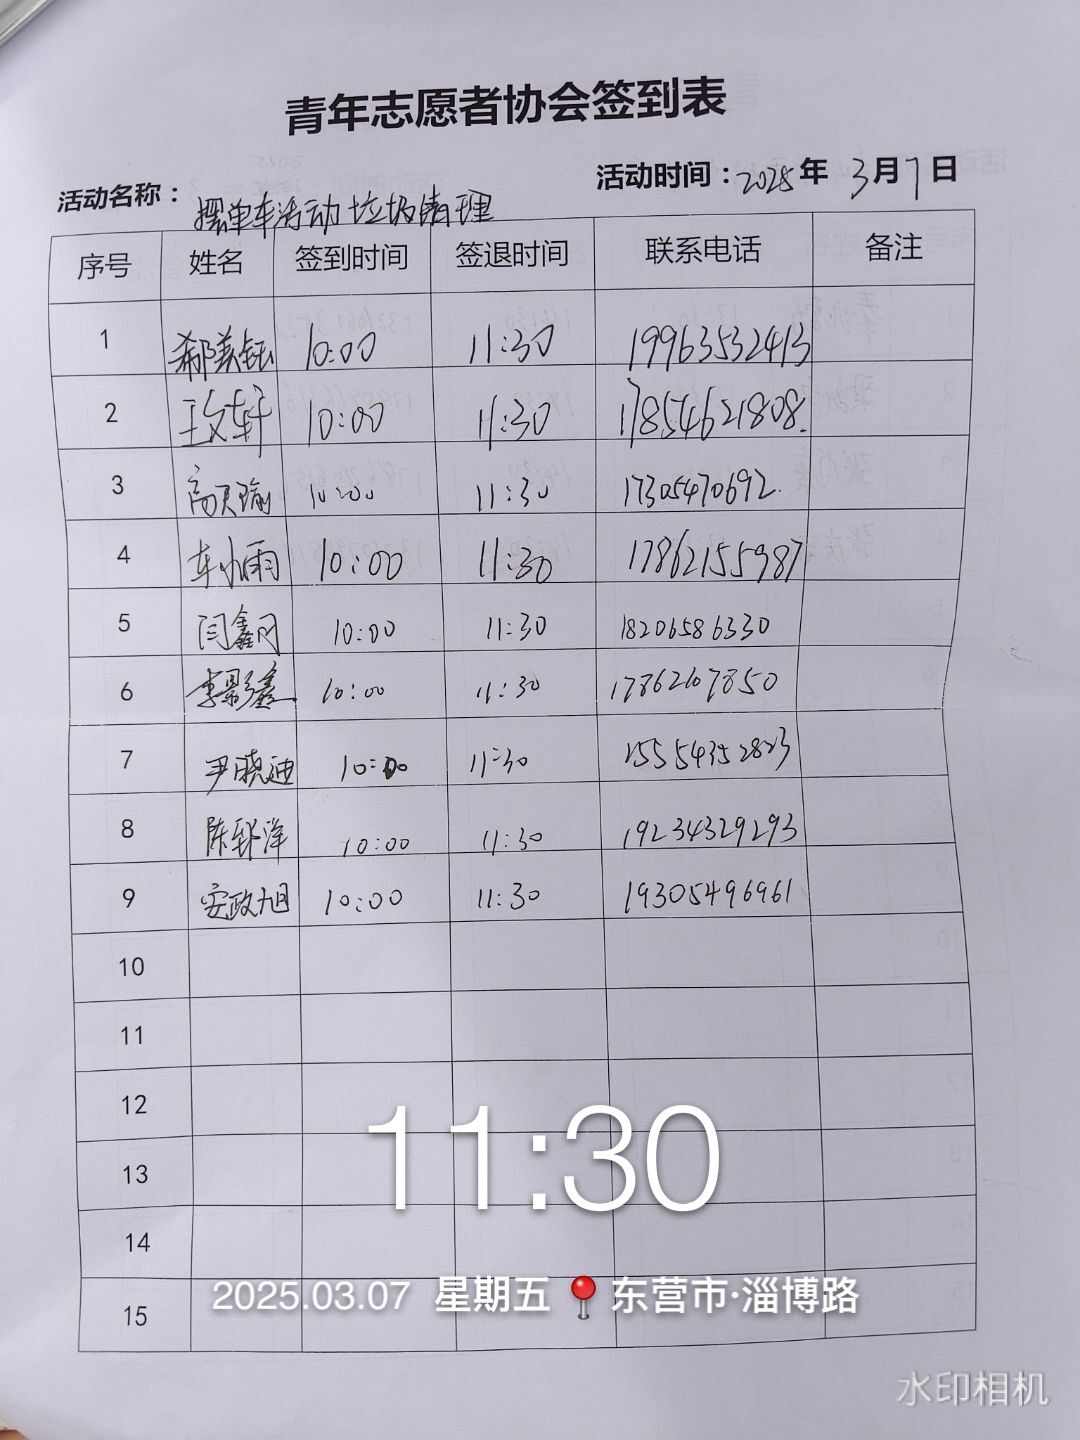 青年志愿者协会签到表
活动名称：摆单车活动 垃圾清理
活动时间：2025年 3月7日
序号 姓名 签到时间 签退时间 联系电话 备注
1 郗美钰 10:00 11:30 19963532413
2 王文轩 10:00 11:30 17854621808.
3 高天瑜 10:00 11:30 17305470692.
4 车小雨 10:00 11:30 17862155987
5 闫鑫 10:00 11:30 18206586330
6 李影鑫 10:00 11:30 17862107850
7 尹晓迪 10:00 11:30 15554352823
8 陈 洋 10:00 11:30 19234329293
9 安政旭 10:00 11:30 19305496961
10
11
12
13
14
15
11:30
2025.03.07 星期五 东营市·淄博路
水印相机